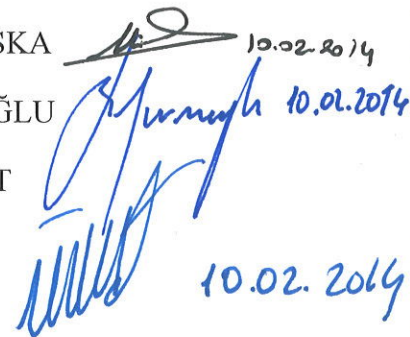 SKA 10.02.2014
ĞLU 10.02.2014
T
10.02.2014